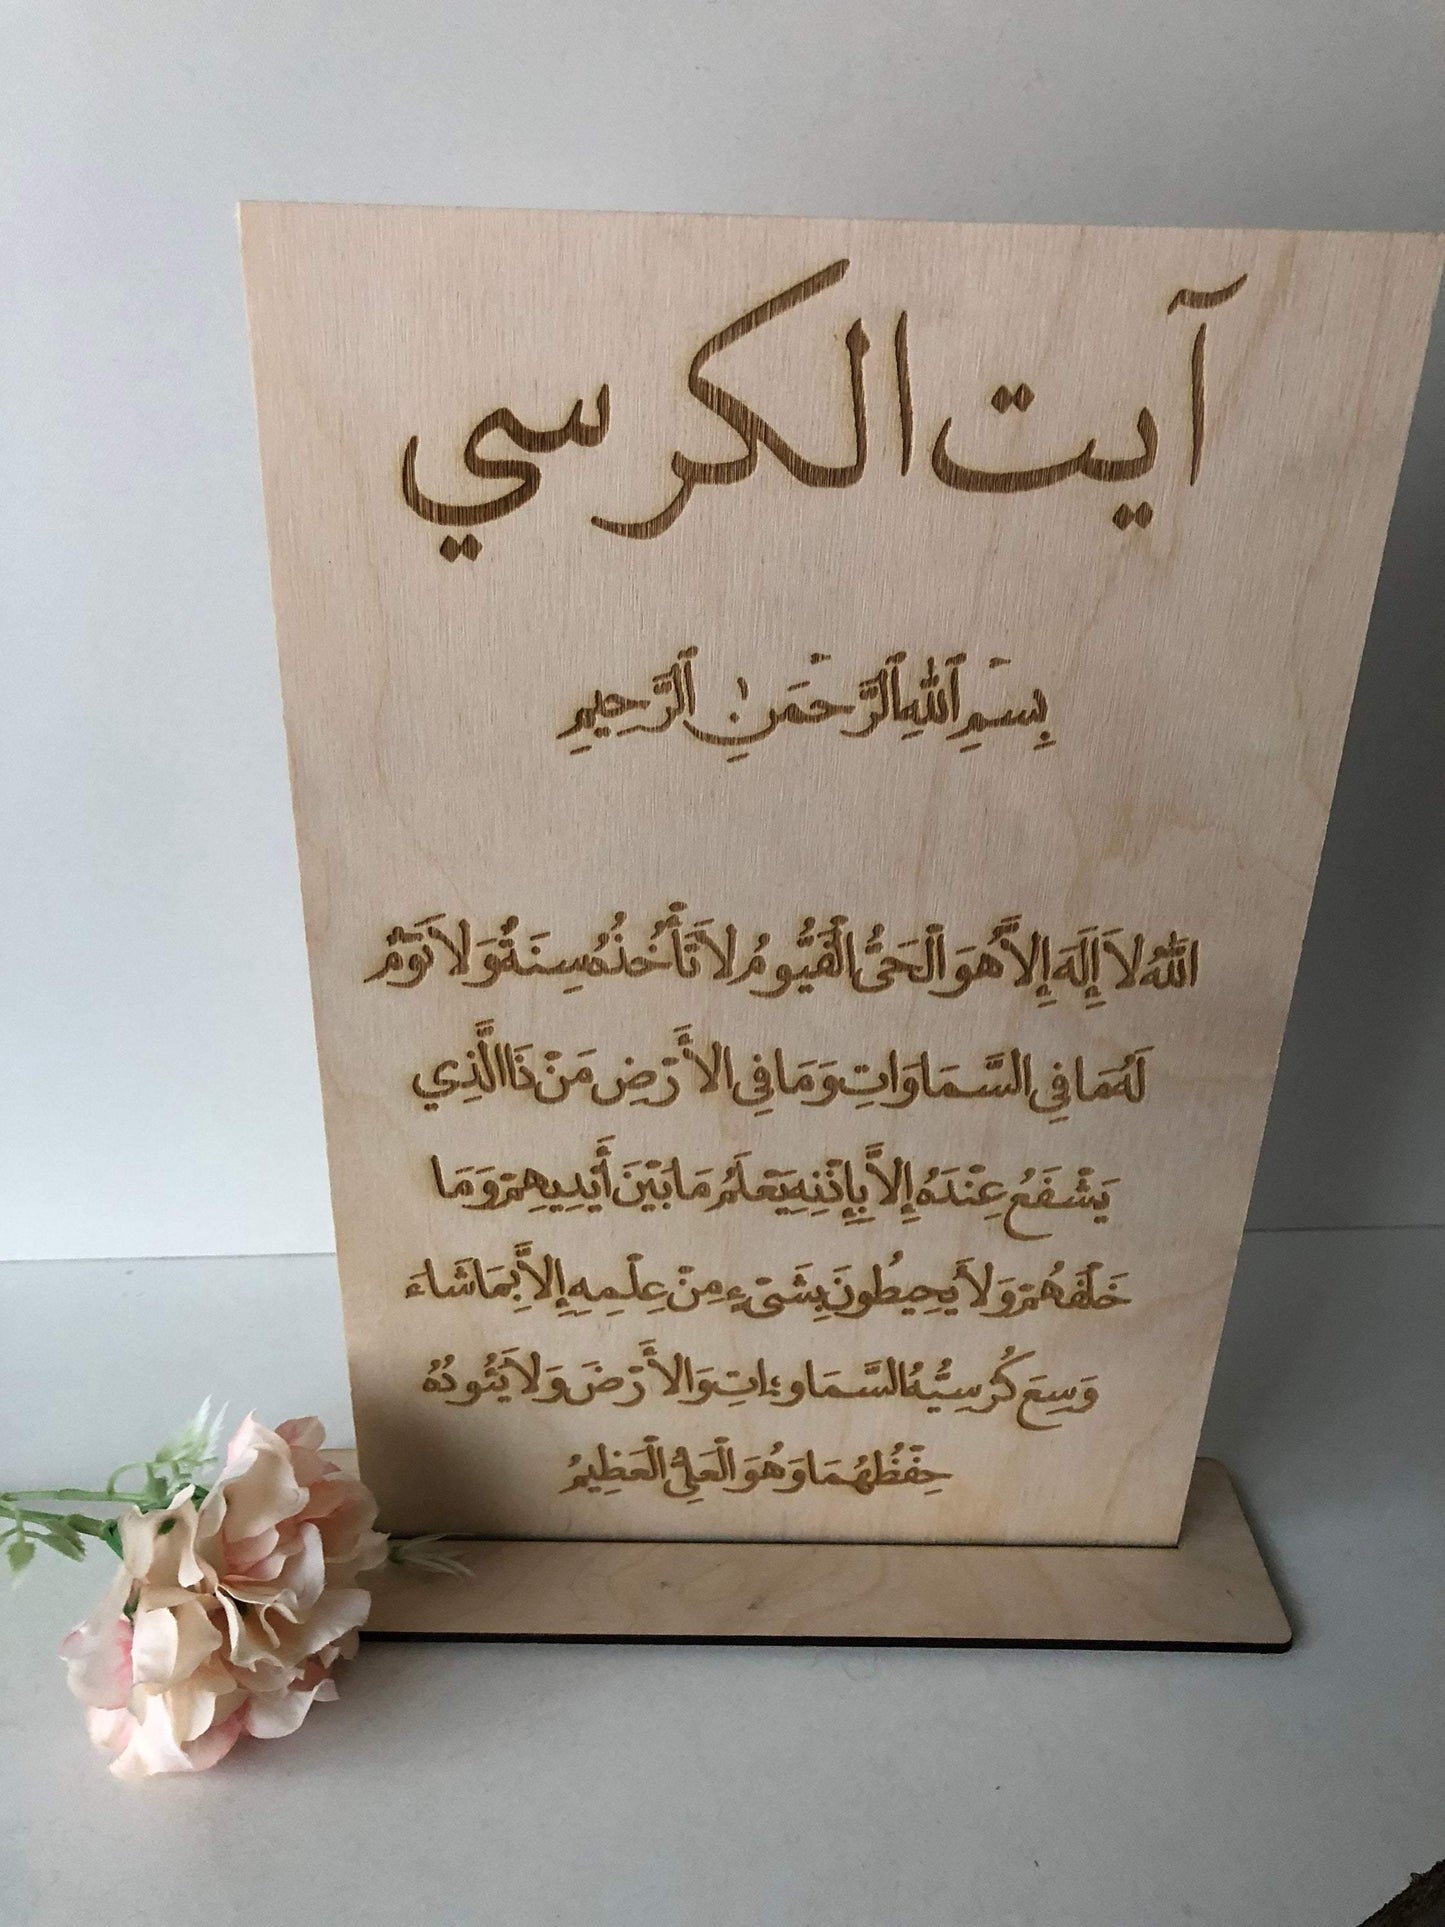 آيت الكرسي
بِسْمِ ٱللَّهِ ٱلرَّحْمَنِ ٱلرَّحِيمِ
اللَّهُ لاَ إِلَهَ إِلاَّ هُوَ الْحَيُّ الْقَيُّومُ لاَ تَأْخُذُهُ سِنَةٌ وَلاَ نَوْمٌ
لَهُ مَا فِي السَّمَاوَاتِ وَمَا فِي الأَرْضِ مَنْ ذَا الَّذِي
يَشْفَعُ عِنْدَهُ إِلاَّ بِإِذْنِهِ يَعْلَمُ مَا بَيْنَ أَيْدِيهِمْ وَمَا
خَلْفَهُمْ وَلاَ يُحِيطُونَ بِشَيْءٍ مِنْ عِلْمِهِ إِلاَّ بِمَا شَاءَ
وَسِعَ كُرْسِيُّهُ السَّمَاوَاتِ وَالأَرْضَ وَلاَ يَئُودُهُ
حِفْظُهُمَا وَهُوَ الْعَلِيُّ الْعَظِيمُ